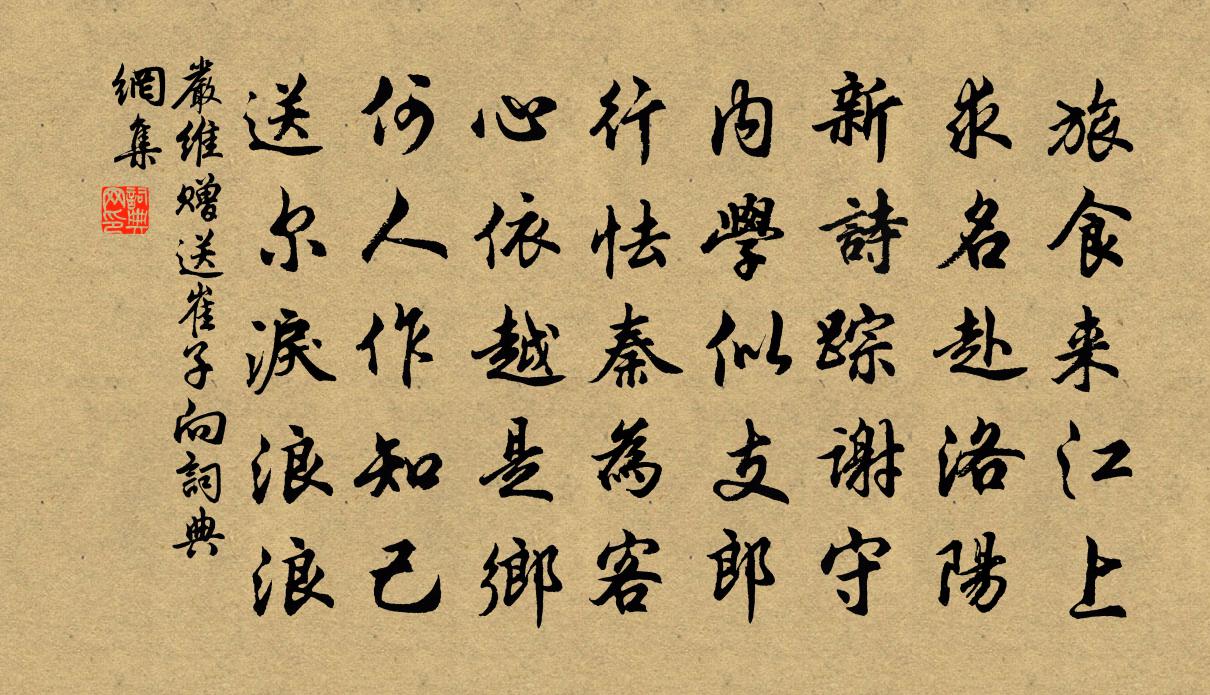 旅食来江上
求名赴洛陽
新詩踪謝守
内學似支郎
行怯秦為客
心依越是鄉
何人作知己
送尔淚浪浪
嚴維赠送崔子向詞典
網集
詞典
网印